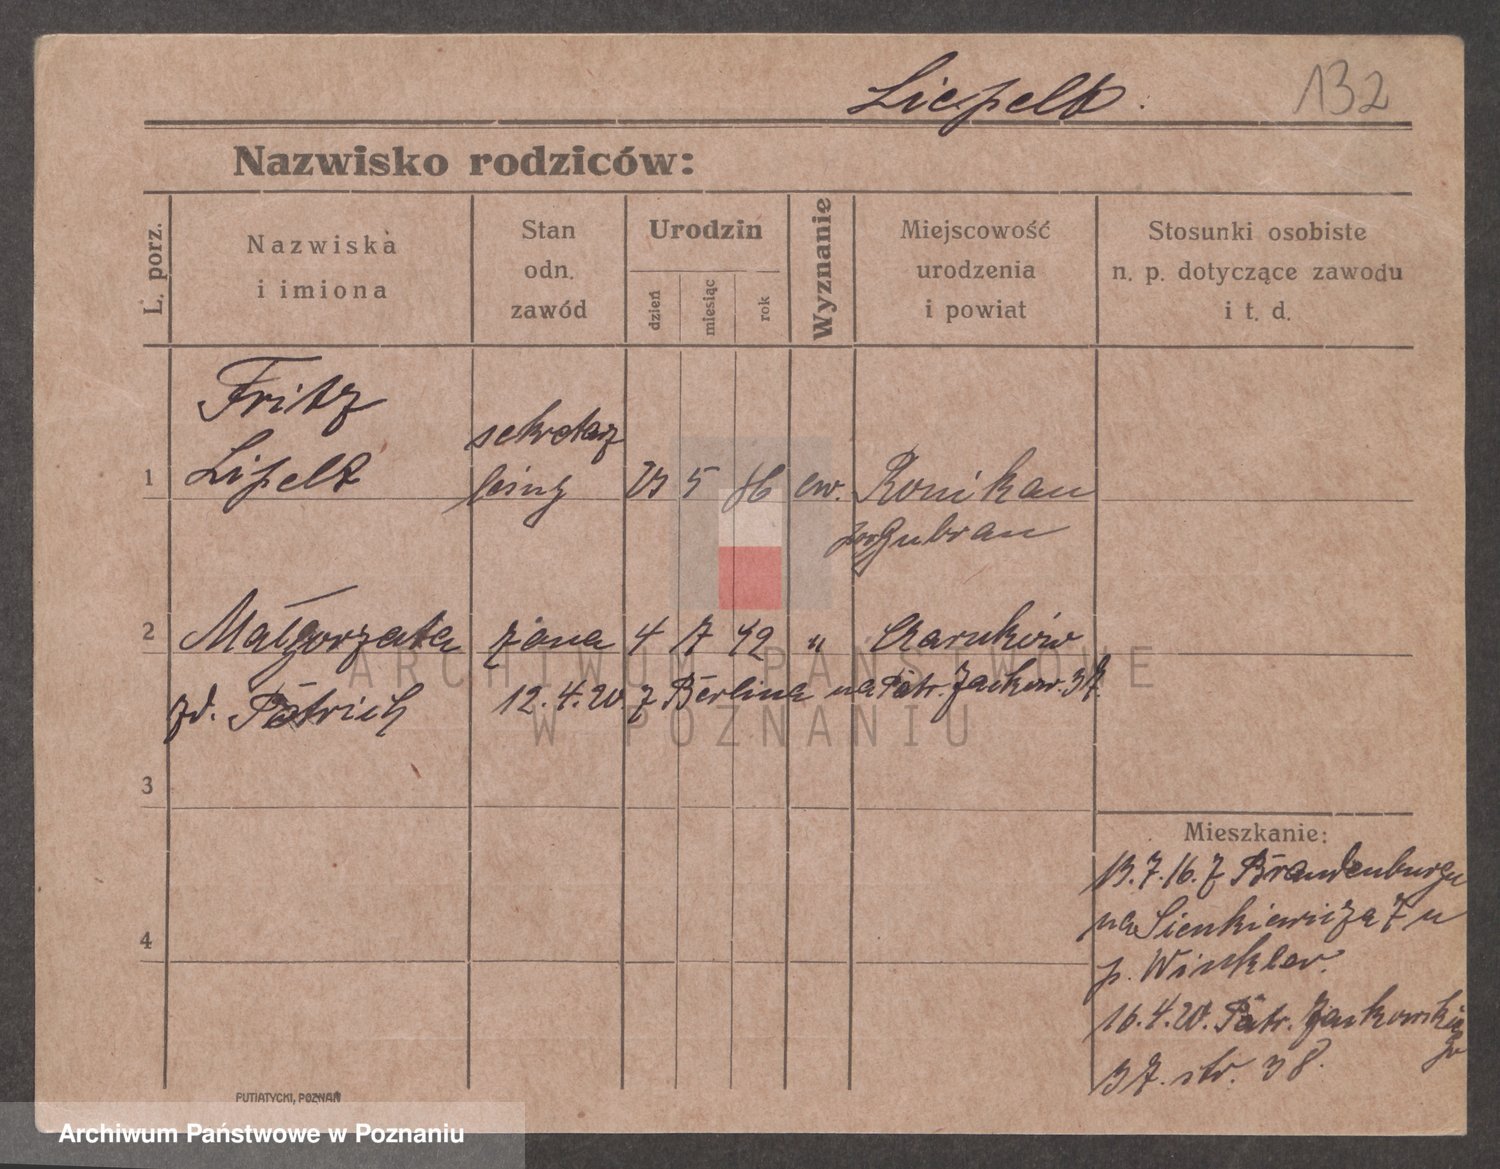 Liepelt.
132
Nazwisko rodziców:
L. porz.
Nazwiska
i imiona
Stan
odn.
zawód
Urodzin
dzień
miesiąc
rok
Wyznanie
Miejscowość
urodzenia
i powiat
Stosunki osobiste
n. p. dotyczące zawodu
i t. d.
Fritz
sekretarz
1 Lipelt 5 ew. Ronikau
Gubrau
2 Małgorzata żona 4 7 92 " Czarnków
zd. 12.4.20 z Berlina na Patr. Jackow. 37.
3
Mieszkanie:
13.7.16. z Brandenburga
na Sienkiewicza 7 u
p. Winkler.
4
16.4.20. Patr. Jackowskie
go
37. str. 38.
PUTIATYCKI, POZNAŃ
ARCHIWUM PAŃSTWOWE
W POZNANIU
Archiwum Państwowe w Poznaniu